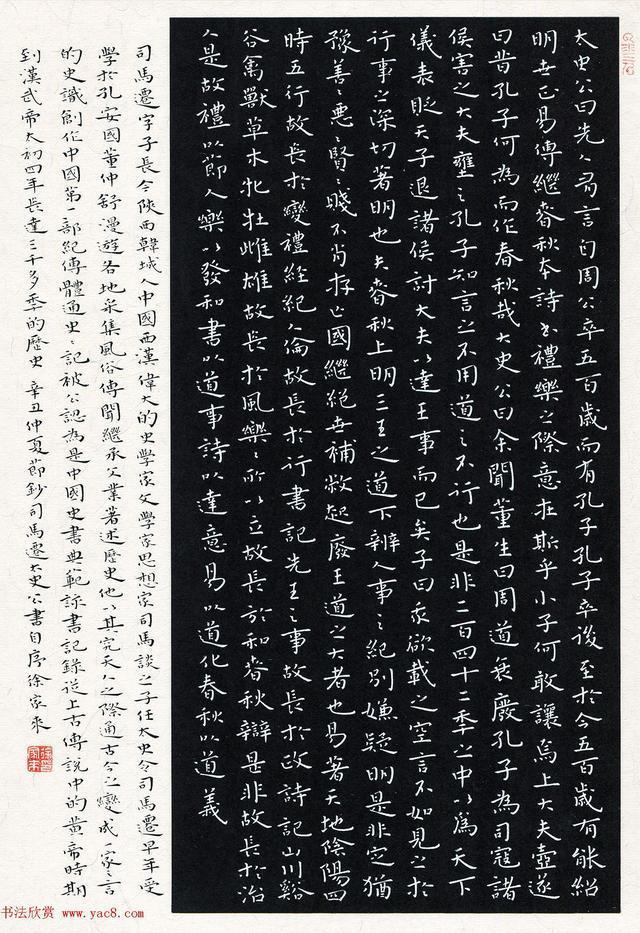 太史公曰先人有言自周公卒五百歲而有孔子孔子卒後至於今五百歲有能紹
明世正易傳繼春秋本詩書禮樂之際意在斯乎小子何敢讓焉上大夫壺遂
曰昔孔子何為而作春秋哉太史公曰余聞董生曰周道衰廢孔子為司寇諸
侯害之大夫壅之孔子知言之不用道之不行也是非二百四十二季之中以為天下
儀表貶天子退諸侯討大夫以達王事而已矣子曰我欲載之空言不如見之於
行事之深切著明也夫春秋上明三王之道下辨人事之紀別嫌疑明是非定猶
豫善善惡惡賢賢賤不肖存亡國繼絕世補敝起廢王道之大者也易著天地陰陽四
時五行故長於變禮經紀人倫故長於行書記先王之事故長於政詩記山川谿
谷禽獸草木牝牡雌雄故長於風樂樂所以立故長於和春秋辯是非故長於治
人是故禮以節人樂以發和書以道事詩以達意易以道化春秋以道義
司馬遷字子長今陝西韓城人中國西漢偉大的史學家文學家思想家司馬談之子任太史令司馬遷早年受
學於孔安國董仲舒漫遊各地采集風俗傳聞繼承父業著述歷史他以其究天人之際通古今之變成一家之言
的史識創作中國第一部紀傳體通史史記被公認為是中國史書典範該書記錄從上古傳說中的黃帝時期
到漢武帝太初四年長達三千多季的歷史 辛丑仲夏節鈔司馬遷太史公書自序徐家來
书法欣赏 www.yac8.com